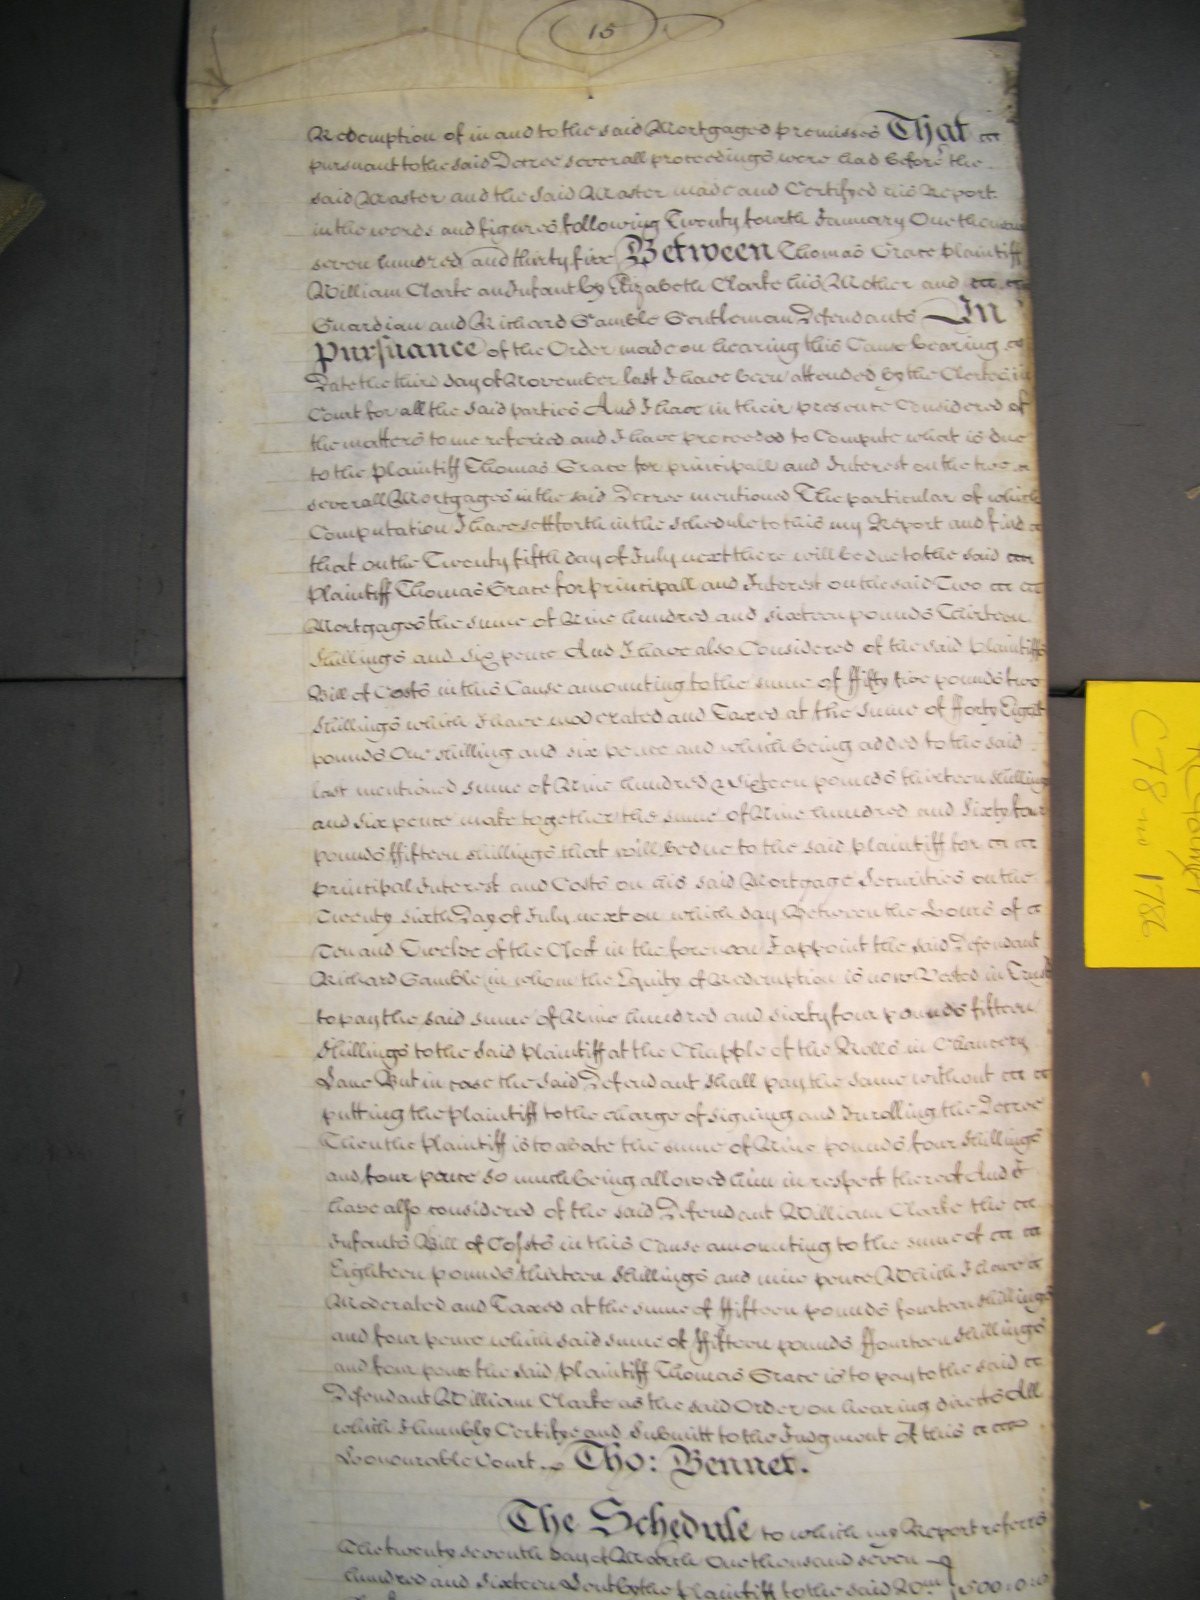 15
Redemption of in and to the said Mortgaged premisses That
pursuant to the said Decree severall proceedings were had before the
said Master and the said Master made and Certifyed his Report
in the words and figures following Twenty fourth January One thousand
seven hundred and thirty five Between Thomas Grace Plaintiff
William Clarke an Infant by Elizabeth Clarke his Mother and
Guardian and Richard Gamble Gentleman Defendants In
pursuance of the Order made on hearing this Cause bearing
Date the third day of November last I have been attended by the Clerkes in
Court for all the said parties And I have in their presence Considered of
the matters to me referred and I have proceeded to Compute what is due
to the plaintiff Thomas Grace for principall and Interest on the two
severall Mortgages in the said Decree mentioned The particular of which
Computation I have sett forth in the schedule to this my Report and find
that on the Twenty fifth day of July next there will be due to the said
plaintiff Thomas Grace for principall and Interest on the said Two
Mortgages the sume of Nine hundred and sixteen pounds Thirteen
Shillings and six pence And I have also Considered of the said plaintiffs
Bill of Costs in this Cause amounting to the sume of ffifty five pounds two
shillings which I have moderated and Taxed at the sume of fforty Eight
pounds One shilling and six pence and which being added to the said
last mentioned sume of Nine hundred & sixteen pounds thirteen shillings
and six pence make together the sume of Nine hundred and sixty four
pounds ffifteen shillings that will be due to the said plaintiff for
principal Interest and Costs on his said Mortgage Securities on the
Twenty sixth Day of July next on which day Between the Hours of
Ten and Twelve of the Clock in the forenoon I appoint the said Defendant
Richard Gamble in whom the Equity of Redemption is now Vested in Trust
to pay the said sume of Nine hundred and sixty four pounds fifteen
Shillings to the said plaintiff at the Chapple of the Rolls in Chancery
Lane But in case the said Defendant shall pay the same without
putting the plaintiff to the charge of signing and Inrolling the Decree
Then the Plaintiff is to abate the sume of Nine pounds four shillings
and four pence so much being allowed him in respect thereof And I
have also considered of the said Defendant William Clarke the
Infants Bill of Costs in this Cause amounting to the sume of
Eighteen pounds thirteen shillings and nine pence Which I have
Moderated and Taxed at the sume of ffifteen pounds fourteen shillings
and four pence which said sume of ffifteen pounds ffourteen shillings
and four pence the said plaintiff Thomas Grace is to pay to the said
Defendant William Clarke as the said Order on hearing directs All
which I humbly Certifye and Submitt to the Judgment of this
Honourable Court. Tho: Bennet.
The Schedule to which my Report referrs
The twenty seventh day of March One thousand seven
hundred and sixteen Lent by the plaintiff to the said Wm 500:0:0
C78 no 1786